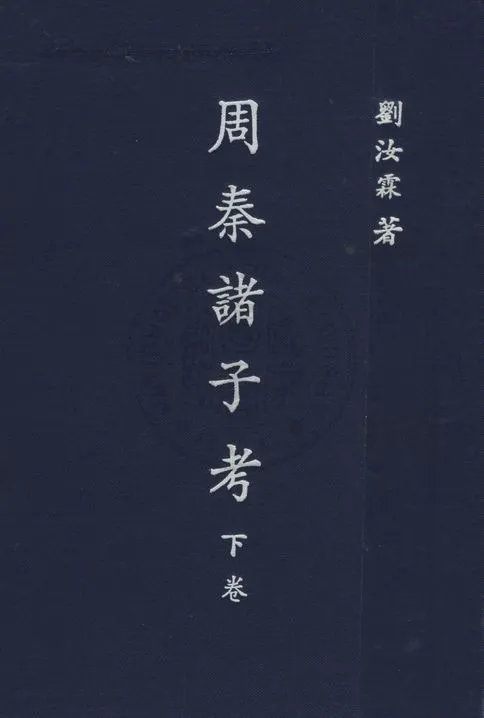 劉汝霖著
周秦諸子考
下卷